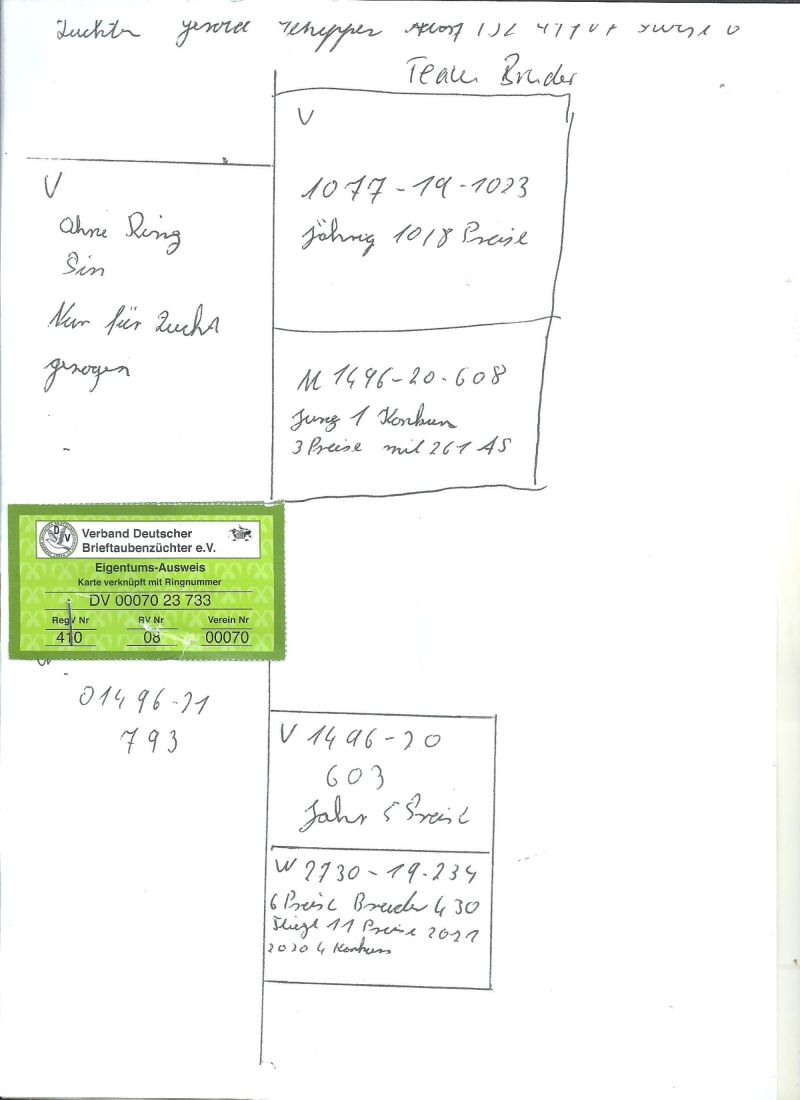 Züchter Gerold Schepper
Team Bruder
V
1077-19-1023
jährig 10/8 Preise
V
Ohne Ring
Sin
Nur für Zucht
gezogen
M 1496-20-608
Jung 1 Konkurs
3 Preise mit 261 AS
DV
Verband Deutscher
Brieftaubenzüchter e.V.
Eigentums-Ausweis
Karte verknüpft mit Ringnummer
DV 00070 23 733
RegV Nr RV Nr Verein Nr
410 08 00070
W
01496-21
793
V 1496-20
603
Jahr 5 Preise
W 2730-19-234
6 Preise Bruder 430
Fliegt 11 Preise 2021
2020 4 Konkurs